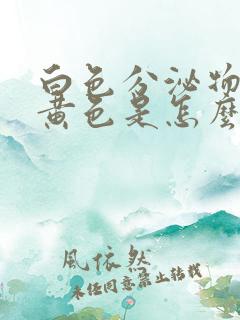 白色分泌物
黃色是怎麼
風依然
未经同意禁止转载